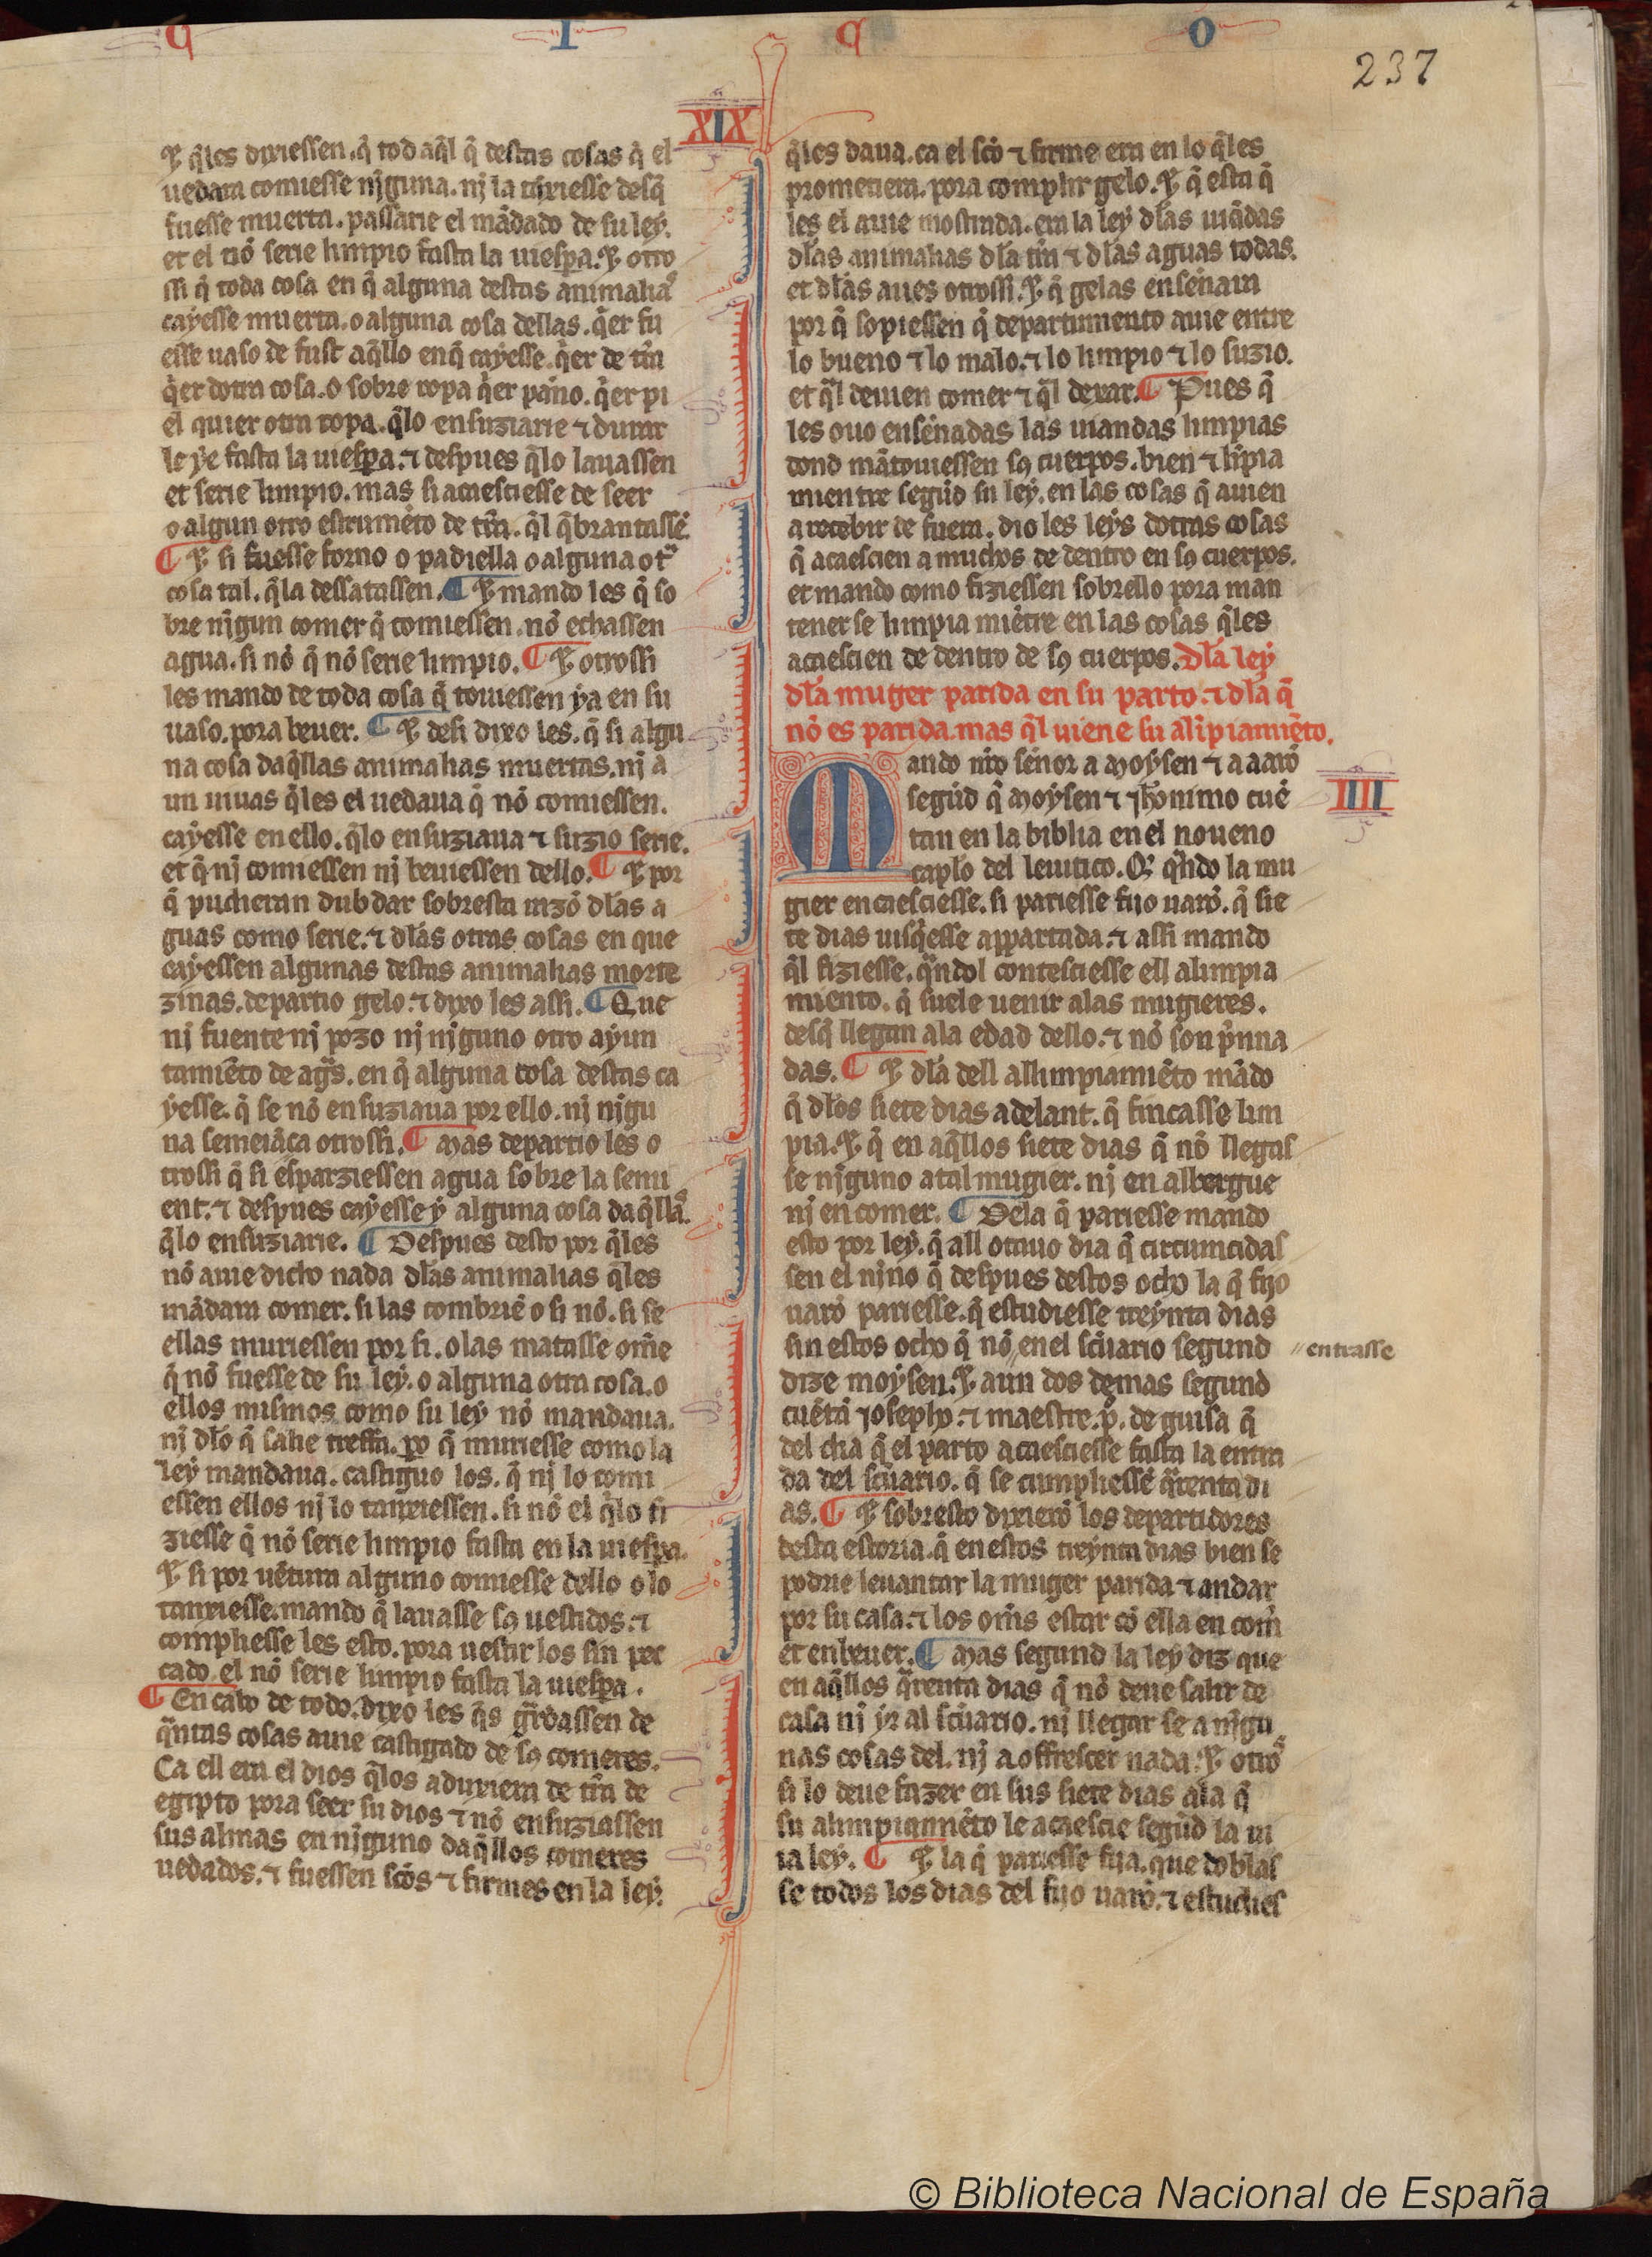 C I C O
237
XIX
⁊ q̃les dixiessen. q̃ tod aq̃l q̃ destas cosas q̃ el
uedara comiesse nj̃guna. nj la tãxiesse desq̃
fuesse muerta. passarie el mãdado de su ley.
et el nõ serie limpio fasta la uiespa. ⁊ otro
ssi q̃ toda cosa en q̃ alguna destas animalias
cayesse muerta. o alguna cosa dellas. q̃er fu
esse uaso de fust aq̃llo en q̃ cayesse. q̃er de tr̃ra
q̃er dotra cosa. o sobre ropa q̃er paño. q̃er pi
el quier otra ropa. q̃lo ensuziarie ⁊ durar
le ye fasta la uiespa. ⁊ despues q̃lo lauassen
et serie limpio. mas si acaesciesse de seer
o algun otro estrumẽto de tr̃ra. q̃l q̃brantassẽ.
¶ ⁊ si fuesse forno o padiella o alguna otra
cosa tal. q̃la dessatassen. ¶ ⁊ mando les q̃ so
bre nj̃gun comer q̃ comiessen. nõ echassen
agua. si nõ q̃ nõ serie limpio. ¶ ⁊ otrossi
les mando de toda cosa q̃ touiessen ya en su
uaso. pora beuer. ¶ ⁊ desi dixo les. q̃ si algu
na cosa daq̃llas animalias muertas. nj a
un uiuas q̃les el uedaua q̃ nõ comiessen.
cayesse en ello. q̃lo ensuziaua ⁊ suzio serie.
et q̃ nj comiessen nj beuiessen dello. ¶ ⁊ por
q̃ pudieran dubdar sobresta razõ dlas a
guas como serie. ⁊ dlas otras cosas en que
cayessen algunas destas animalias morte
zinas. departio gelo. ⁊ dixo les assi. ¶ Que
nj fuente nj pozo nj nj̃guno otro ayun
tamiẽto de ag̃s. en q̃ alguna cosa destas ca
yesse. q̃ se nõ ensuziaua por ello. nj nj̃gu
na semeiãca otrossi. ¶ Mas departio les o
trossi q̃ si esparziessen agua sobre la semi
ent. ⁊ despues cayesse y alguna cosa daq̃llas.
q̃lo ensuziarie. ¶ Despues desto por q̃les
nõ auie dicho nada dlas animalias q̃les
mãdara comer. si las combriẽ o si nõ. si se
ellas muriessen por si. o las matasse om̃e
q̃ nõ fuesse de su ley. o alguna otra cosa. o
ellos mismos como su ley nõ mandaua.
nj dlo q̃ salie treffa. po q̃ muriesse como la
ley mandaua. castiguo los. q̃ nj lo comi
essen ellos nj lo tanxiessen. si nõ el q̃lo fi
ziesse q̃ nõ serie limpio fasta en la uiespa.
⁊ si por uẽtura alguno comiesse dello o lo
tanxiesse. mando q̃ lauasse sꝯ uestidos. ⁊
compliesse les esto. pora uestir los sin pec
cado. el nõ serie limpio fasta la uiespa.
¶ En cabo de todo. dixo les q̃s gr̃dassen de
q̃ntas cosas auie castigado de sꝯ comeres.
Ca ell era el dios q̃los aduxiera de tr̃ra de
egipto pora seer su dios ⁊ nõ ensuziassen
sus almas en nj̃guno daq̃llos comeres
uedados. ⁊ fuessen scõs ⁊ firmes en la ley.
q̃les daua. ca el scõ ⁊ firme era en lo q̃les
prometiera. pora complir gelo. ⁊ q̃ esta q̃
les el auie mostrada. era la ley dlas uiãdas
dlas animalias dla tr̃ra ⁊ dlas aguas todas.
et dlas aues otrossi. ⁊ q̃ gelas enseñara
por q̃ sopiessen q̃ departimiento auie entre
lo bueno ⁊ lo malo. ⁊ lo limpio ⁊ lo suzio.
et q̃l deuien comer ⁊ q̃l dexar. ¶ Pues q̃
les ouo enseñadas las uiandas limpias
dond mãtouiessen sꝯ cuerpos. bien ⁊ lĩpia
mientre segũd su ley. en las cosas q̃ auien
a recebir de fuera. dio les leys dotras cosas
q̃ acaescien a muchos de dentro en sꝯ cuerpos.
et mando como fiziessen sobrello pora man
tener se limpia miẽtre en las cosas q̃les
acaescien de dentro de sꝯ cuerpos. Dla ley
dla muger parida en su parto. ⁊ dla q̃
nõ es parida. mas q̃l uiene su alĩpiamiẽto.
IIII
Mando nr̃o señor a Moysen ⁊ a aarõ
segũd q̃ Moysen ⁊ jheronimo cuẽ
tan en la biblia en el noueno
caplo del leuitico. Q̃ q̃ndo la mu
gier encaesciesse. si pariesse fijo uarõ. q̃ sie
te dias uisq̃esse appartada. ⁊ assi mando
q̃l fiziesse. q̃ndol contesciesse ell alimpia
miento. q̃ suele uenir alas mugieres.
desq̃ llegan ala edad dello. ⁊ nõ son p̃nna
das. ¶ ⁊ dla dell allimpiamiẽto mãdo
q̃ dlos siete dias adelant. q̃ fincasse lim
pia. ⁊ q̃ en aq̃llos siete dias q̃ nõ llegas
se nj̃guno a tal mugier. nj en albergue
nj en comer. ¶ Dela q̃ pariesse mando
esto por ley. q̃ all ochauo dia q̃ circumcidas
sen el nino q̃ despues destos ocho la q̃ fijo
uarõ pariesse. q̃ estudiesse treynta dias
sin estos ocho q̃ nõ // en el scũario segund
// entrasse
dize moysen. ⁊ aun dos demas segund
cuẽtã josepho. ⁊ maestre. p̃. de guisa q̃
del dia q̃ el parto acaesciesse fasta la entra
da del scũario. q̃ se cumpliessẽ q̃renta di
as. ¶ ⁊ sobresto dixierõ los departidores
desta estoria. q̃ en estos treynta dias bien se
podrie leuantar la muger parida ⁊ andar
por su casa. ⁊ los om̃s estar cõ ella en com̃
et en beuer. ¶ Mas segund la ley diz que
en aq̃llos q̃renta dias q̃ nõ deue salir de
casa nj yr al scũario. nj llegar se a nj̃gu
nas cosas del. nj a offrescer nada. ⁊ otro
si lo deue fazer en sus siete dias ala q̃
su alimpiamiẽto le acaescie segũd la ui
ia ley. ¶ ⁊ la q̃ pariesse fija. que doblas
se todos los dias del fijo uarõ. ⁊ estudies
© Biblioteca Nacional de España